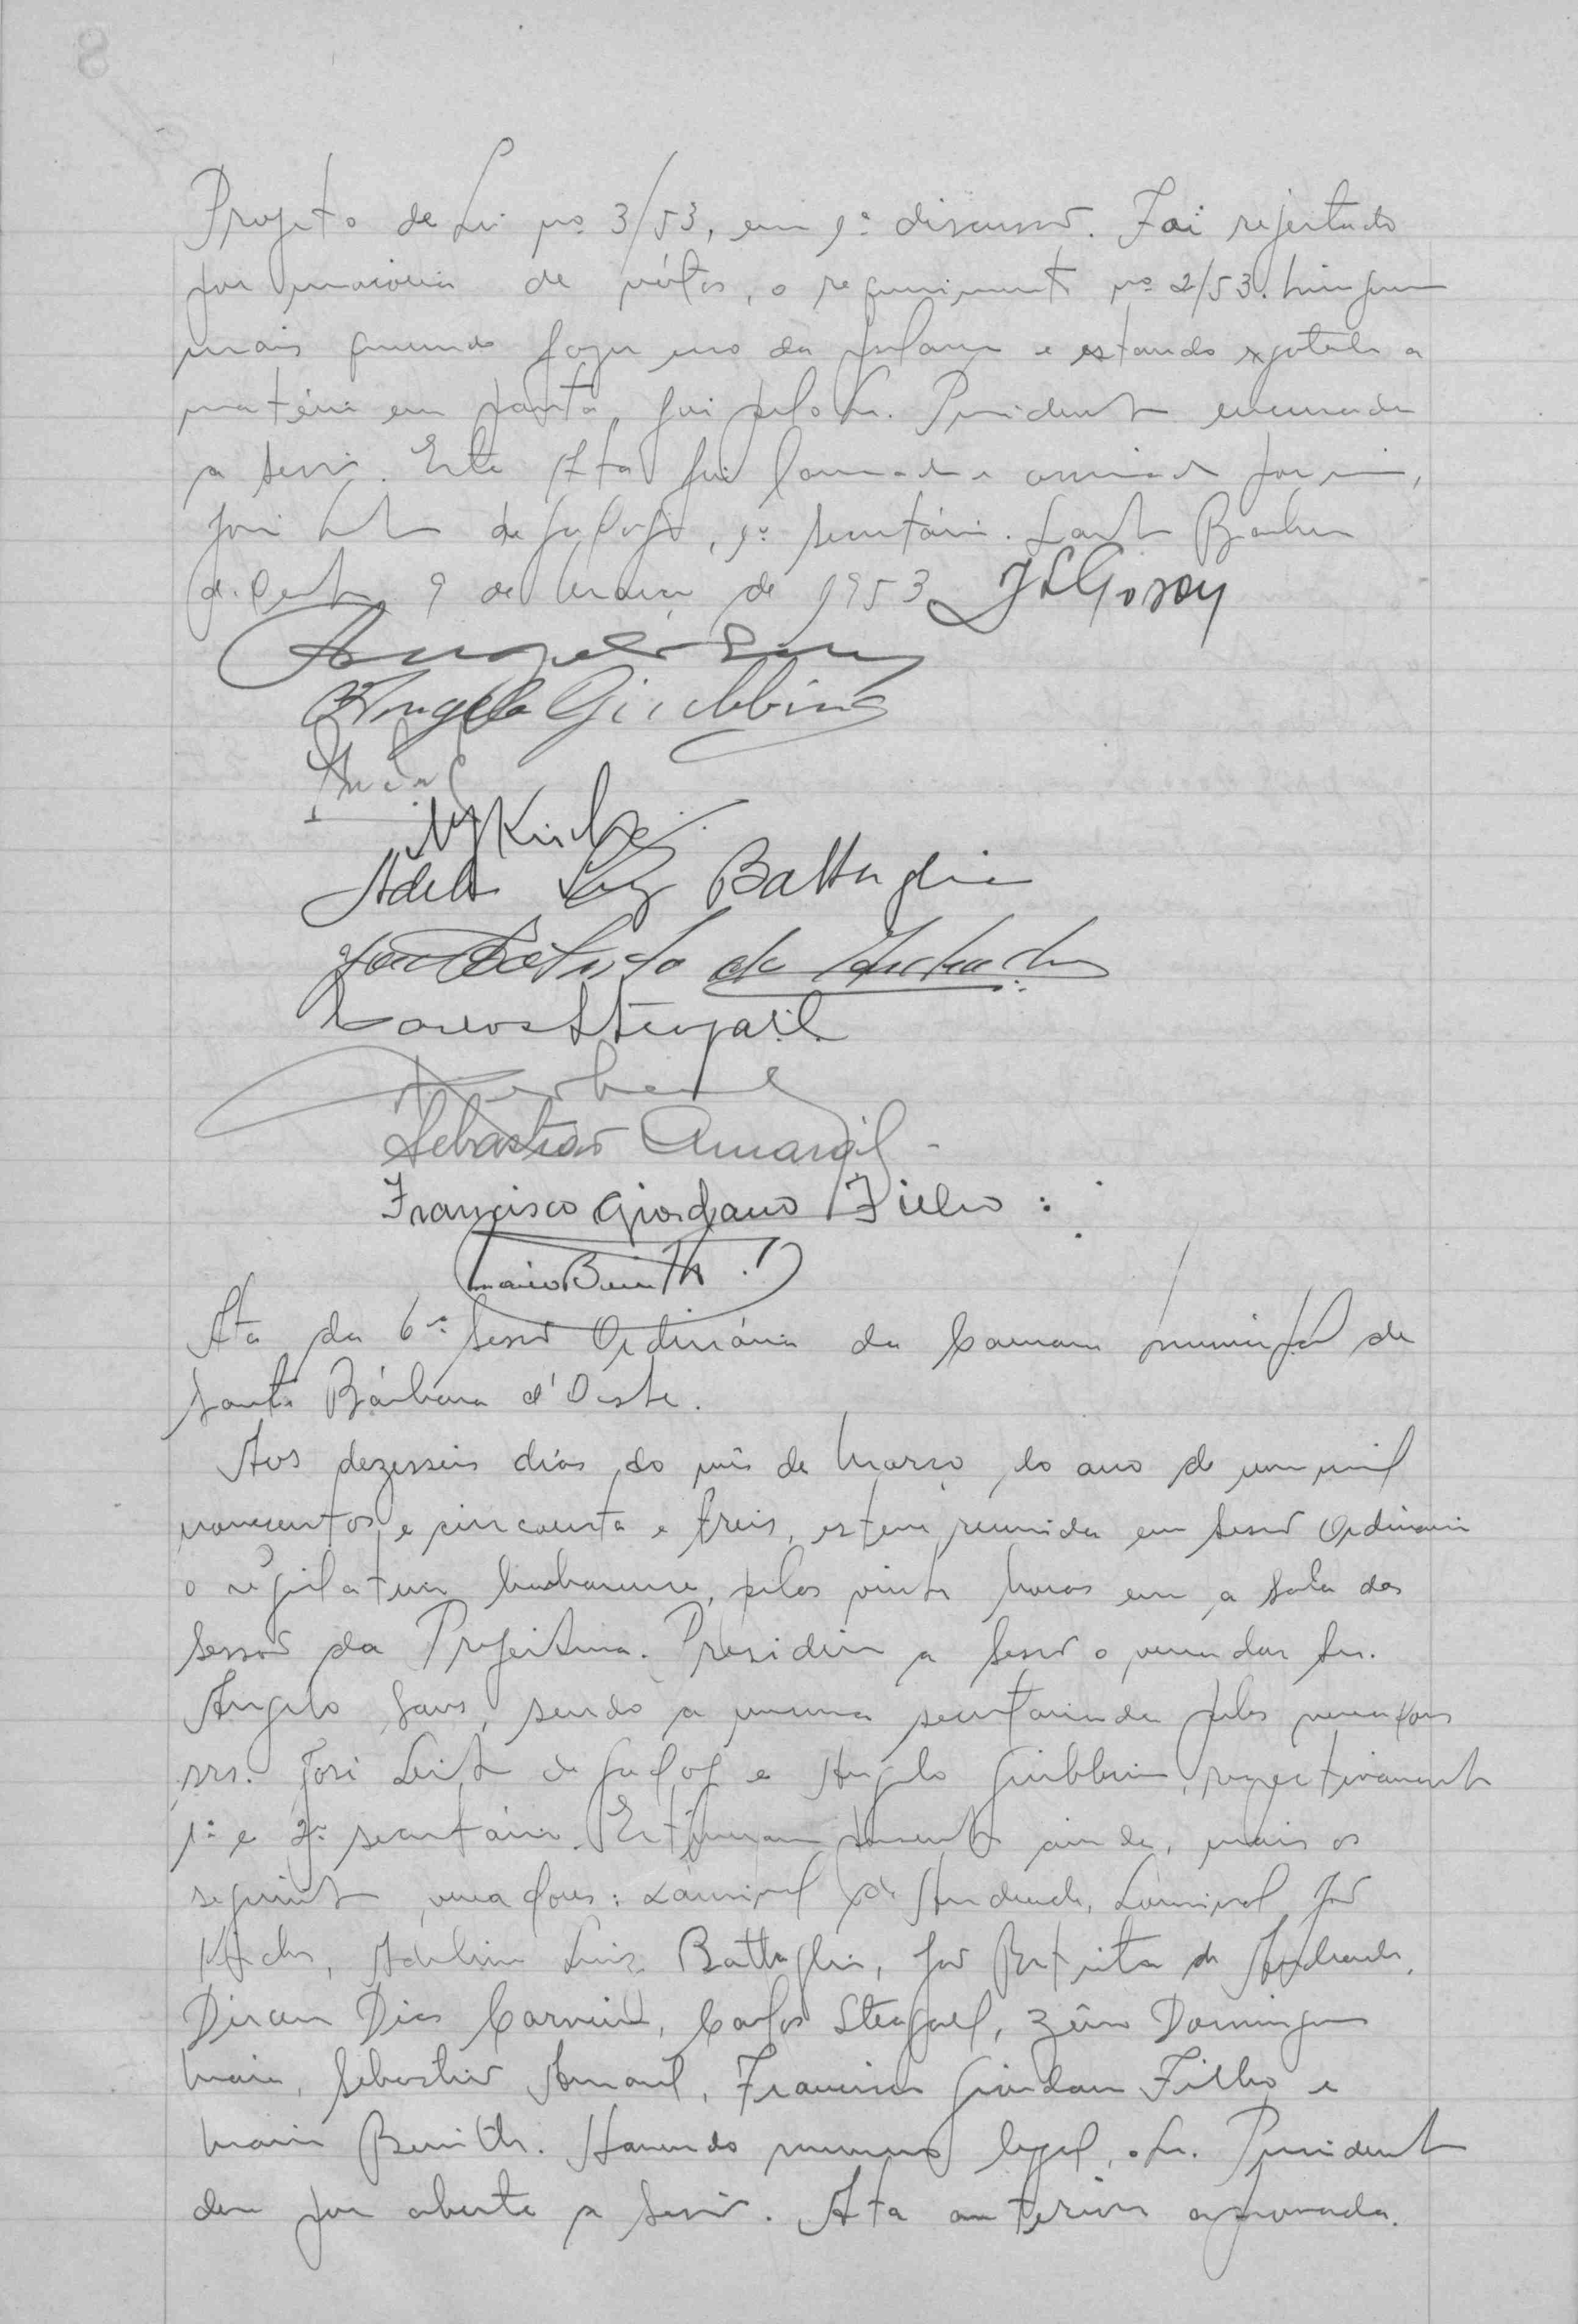 Projeto de Lei nº 3/53, em 1ª discussão. Foi rejeitado
por maioria de vótos, o requerimento nº 2/53. Ninguem
mais querendo fazer uso da palavra e estando esgotada a
matéria em pauta, foi pelo Sr. Presidente encerrada
a sessão. Esta Ata foi lavrada e assinada por mim,
José Leite de Godoy, 1º Secretário. Santa Barbara
d'Oeste, 9 de Março de 1953 JLGodoy
Angelo Sans
Angelo Giubbina
Adelino Luiz Battaglia
João Batista de Andrade
Carlos Steagall
Sebastião Amaral
Francisco Giordano Filho
Mario Benitth
Ata da 6ª Sessão Ordinária da Camara Municipal de
Santa Bárbara d'Oeste.
Aos dezesseis dias do mês de Março do ano de um mil
novecentos e cincoenta e treis, esteve reunida em Sessão Ordinaria
o legislativo barbarense, pelas vinte horas em a sala das
Sessões da Prefeitura. Presidiu a Sessão o vereador Sr.
Angelo Sans, sendo a mesma secretariada pelos vereadores
srs. José Leite de Godoy e Angelo Giubbina, respectivamente
1º e 2º secretários. Estiveram presente ainda, mais os
seguinte vereadores: Lourival de Andrade, Lourival José
Adelino Luiz Battaglia, João Batista de Andrade,
Dirceu Dias Carneiro, Carlos Steagall, Zêno Domingues
Maia, Sebastião Amaral, Francisco Giordano Filho e
Mario Benitth. Havendo numero legal, o Sr. Presidente
deu por aberta a Sessão. Ata anterior aprovada.